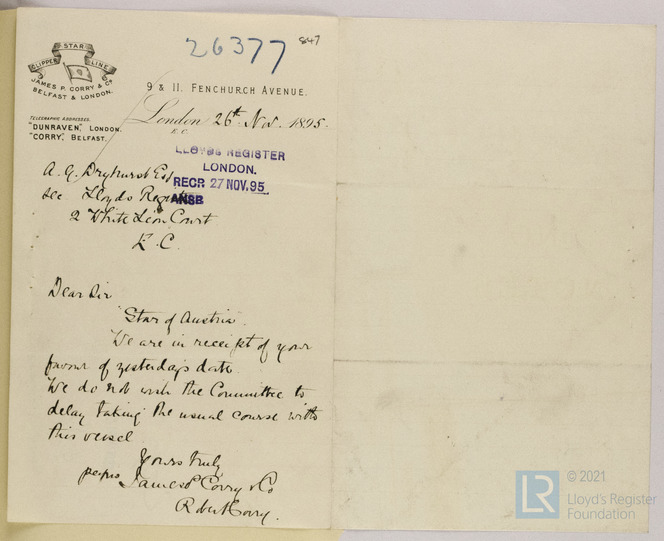 26377
847
CLIPPER STAR LINE
JAMES P. CORRY & Co
BELFAST & LONDON.
TELEGRAPHIC ADDRESSES.
"DUNRAVEN", LONDON.
"CORRY", BELFAST.
9 & 11. FENCHURCH AVENUE.
London 26th Nov. 1895.
E.C.
LLOYDS REGISTER
LONDON.
RECR 27 NOV. 95
ANSB
A. G. Dryhurst Esq
Sec Lloyds Register
2 White Lion Court
E. C.
Dear Sir
"Star of Austria".
We are in receipt of your
favour of yesterday's date.
We do not wish the Committee to
delay taking the usual course with
this vessel.
Yours truly
per pro James P Corry & Co
Robert Corry.
© 2021
LR
Lloyd's Register
Foundation